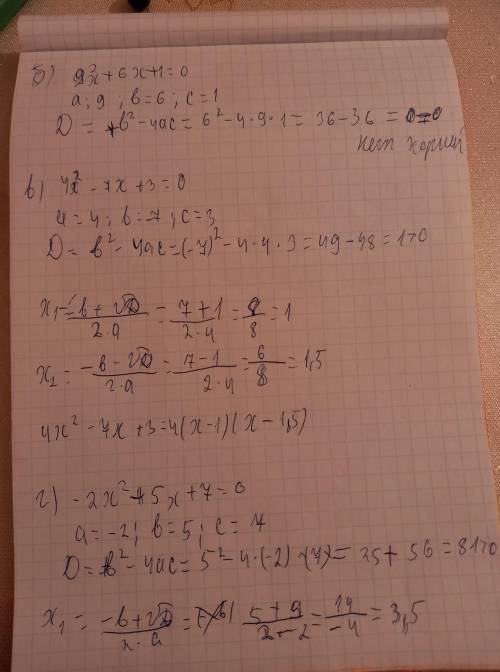 б) 9x²+6x+1=0
a; 9 ; в=6 ; c=1
D = в²-4ac = 6²-4·9·1 = 36-36 = 0=0
нет корней
в) 4x²-7x+3=0
4=4; в=-7; c=3
D = в²-4ac=(-7)²-4·4·3=49-48=1>0
x₁=-в+√D/2·a = 7+1/2·4 = 8/8 = 1
x₂ = -в-√D/2·a = 7-1/2·4 = 6/8 = 1,5
4x²-7x+3=4(x-1)(x-1,5)
г) -2x²+5x+7=0
a=-2; в=5; c=7
D = в²-4ac=5²-4·(-2)·(7)=25+56=81>0
x₁ = -в+√D/2·a = 5+9/2·-2 = 14/-4 = 3,5